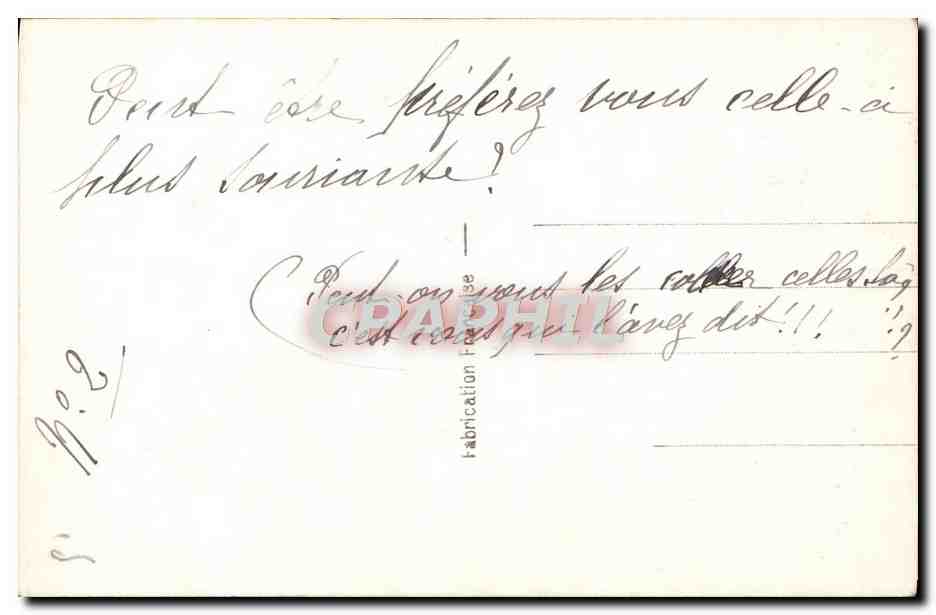 Peut être préférez vous celle-ci
plus souriante?
Peut-on vous les coller celles là
c'est vous qui l'avez dit!!! !!?
Fabrication Française
CPAPHIL
N°. 2
5